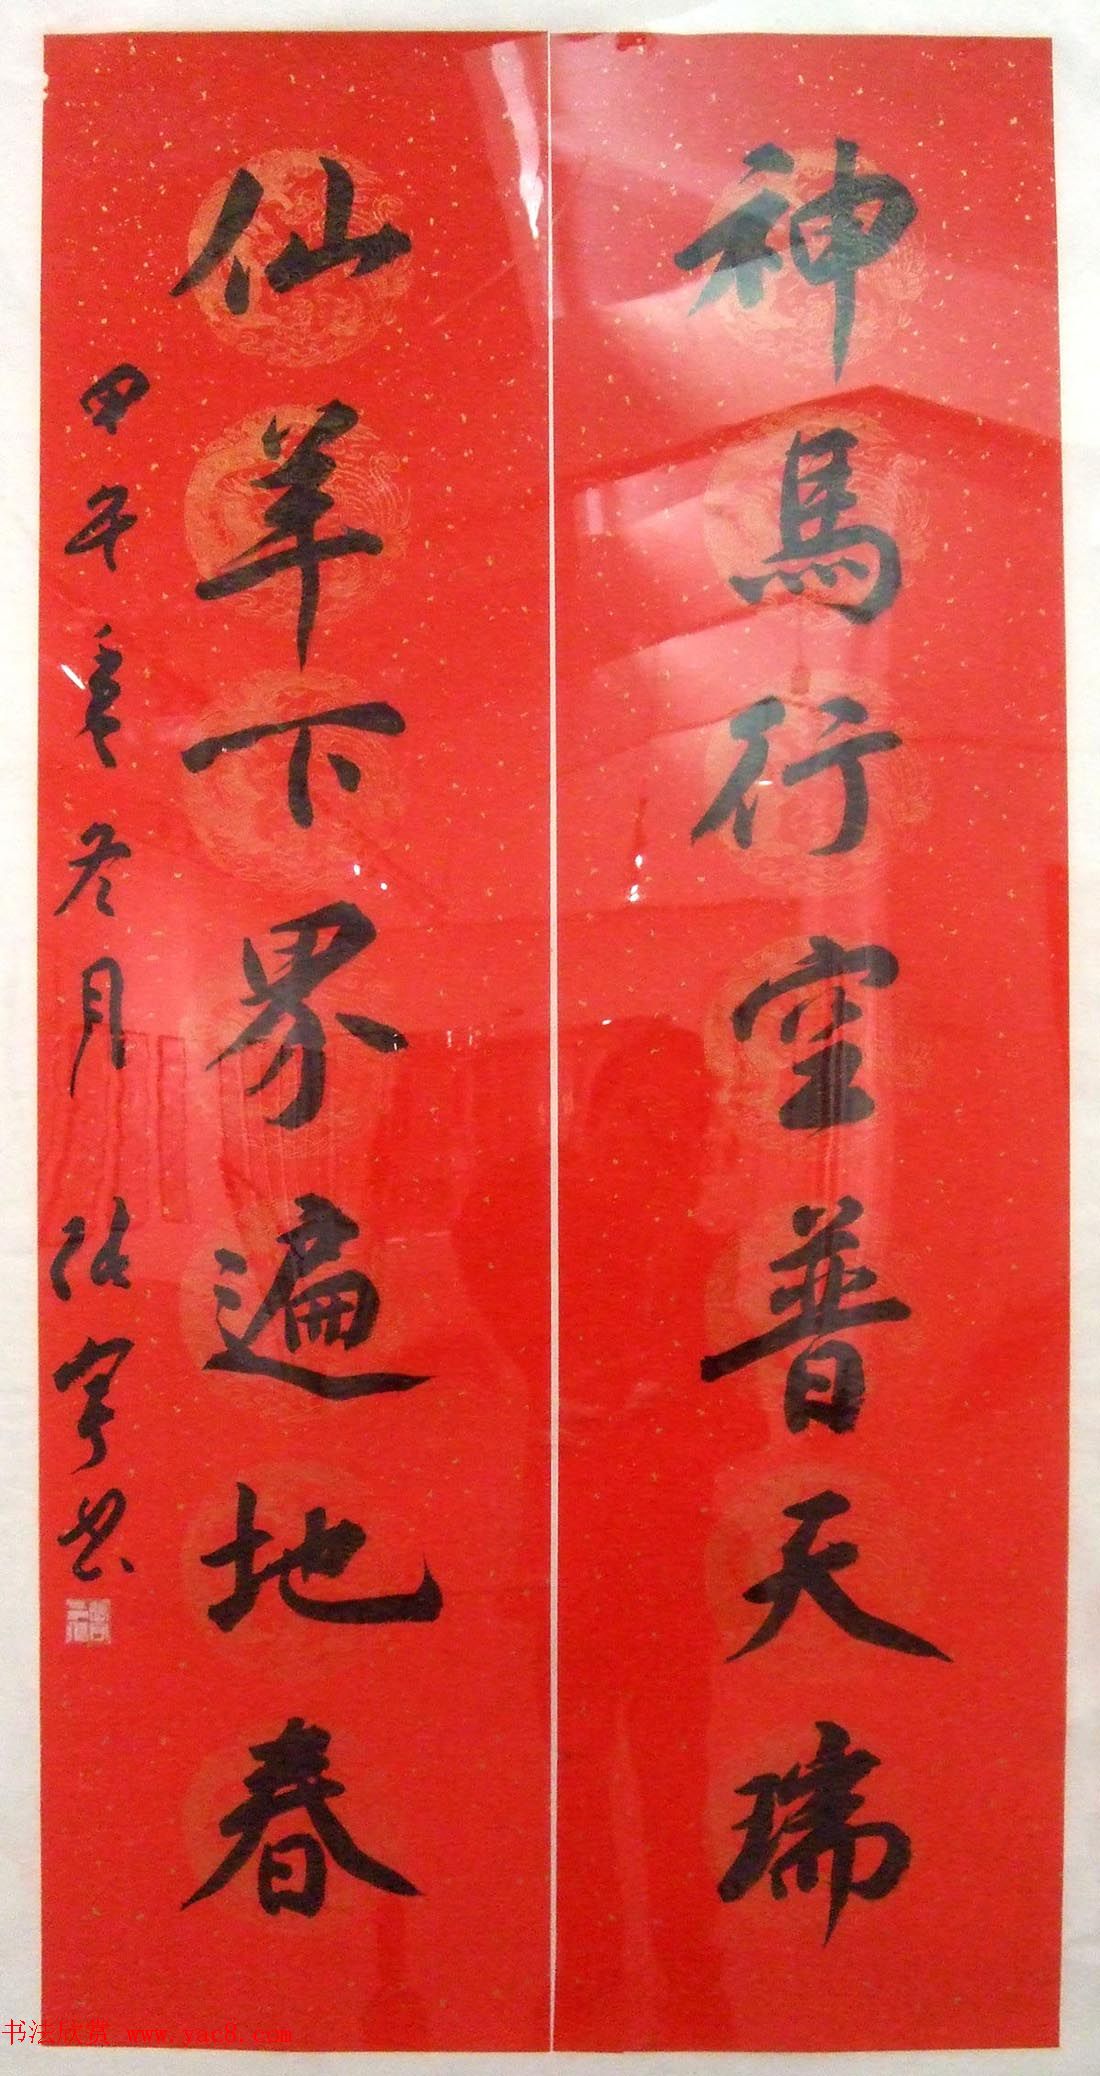 神馬行空普天瑞
仙羊下界遍地春
甲午年冬月
书法欣赏 www.yac8.com